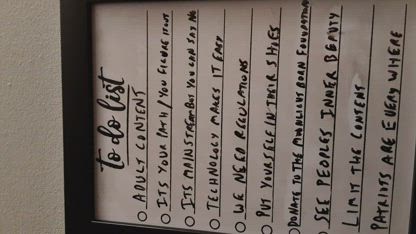 to do list
ADULT CONTENT
ITS YOUR PATH / YOU FIGURE IT OUT
ITS MAINSTREAM BUT YOU CAN SAY NO
TECHNOLOGY MAKES IT EASY
WE NEED REGULATIONS
PUT YOURSELF IN THEIR SHOES
DONATE TO THE BORN FOUNDATION
SEE PEOPLES INNER BEAUTY
LIMIT THE CONTENT
PATRIOTS ARE EVERYWHERE